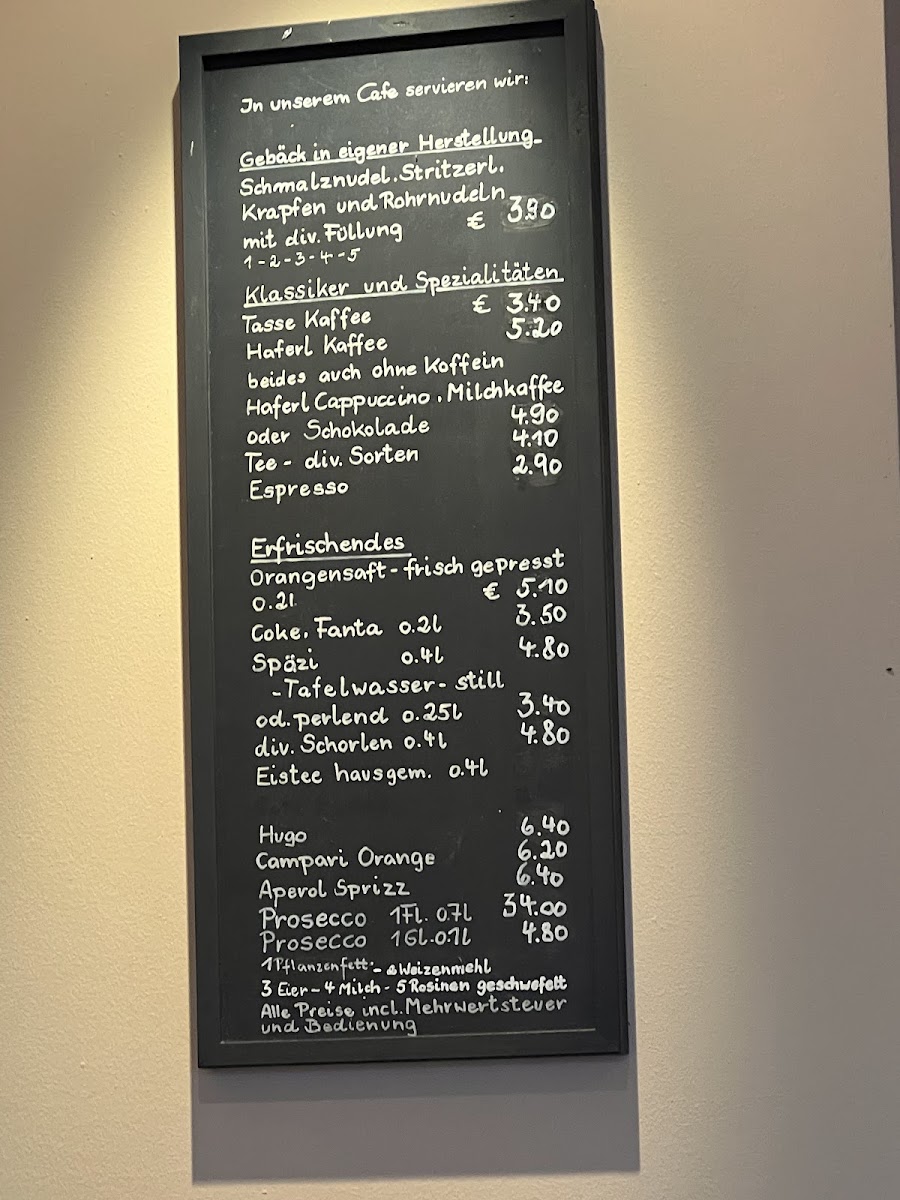 In unserem Cafe servieren wir:
Gebäck in eigener Herstellung-
Schmalznudel. Stritzerl.
Krapfen und Rohrnudeln
mit div. Füllung € 3.90
1-2-3-4-5
Klassiker und Spezialitäten
Tasse Kaffee € 3.40
Haferl Kaffee 5.20
beides auch ohne Koffein
Haferl Cappuccino. Milchkaffee
oder Schokolade 4.90
Tee - div. Sorten 4.10
Espresso 2.90
Erfrischendes
Orangensaft - frisch gepresst
0.2l € 5.10
Coke. Fanta 0.2l 3.50
Späzi 0.4l 4.80
-Tafelwasser- still
od. perlend 0.25l 3.40
div. Schorlen 0.4l 4.80
Eistee hausgem. 0.4l
Hugo 6.40
Campari Orange 6.20
Aperol Sprizz 6.40
Prosecco 1Fl. 0.7l 34.00
Prosecco 1Gl. 0.1l 4.80
1 Pflanzenfett - 2 Weizenmehl
3 Eier - 4 Milch - 5 Rosinen geschwefelt
Alle Preise incl. Mehrwertsteuer
und Bedienung